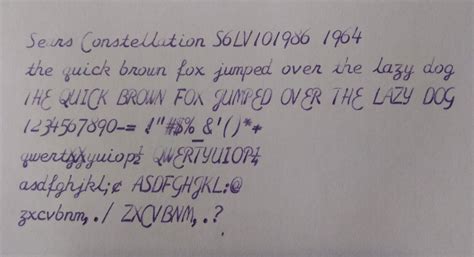 Sears Constellation S6LV101986 1964
the quick brown fox jumped over the lazy dog
THE QUICK BROWN FOX JUMPED OVER THE LAZY DOG
1234567890-= !"#$%_&'()*+
qwertxyuiop½ QWERTYUIOP¼
asdfghjkl;¢ ASDFGHJKL:@
zxcvbnm,./ ZXCVBNM,.?